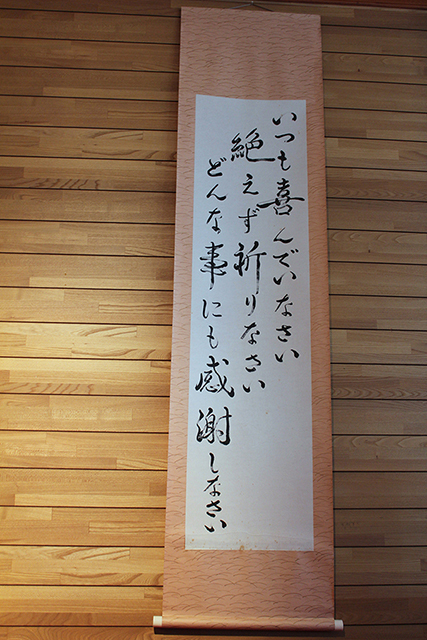 いつも喜んでいなさい
絶えず祈りなさい
どんな事にも感謝しなさい